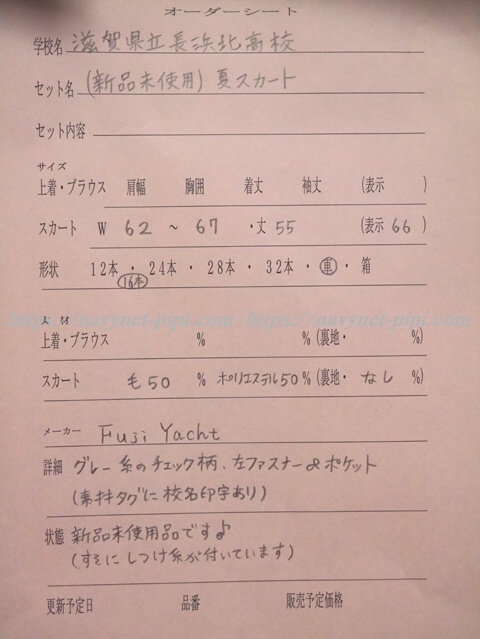 オーダーシート
学校名 滋賀県立長浜北高校
セット名 (新品未使用) 夏スカート
セット内容
サイズ
上着・ブラウス 肩幅 胸囲 着丈 袖丈 (表示 )
スカート W 62 ~ 67 ・丈 55 (表示 66)
形状 12本 ・ 24本 ・ 28本 ・ 32本 ・ 車 ・ 箱
16本
https://navynet-pipi.com/ https://navynet-pipi.com/
上着・ブラウス % % (裏地・ %)
スカート 毛50 % ポリエステル50% (裏地・ なし %)
メーカー Fuji Yacht
詳細 グレー系のチェック柄、左ファスナー&ポケット
(素材タグに校名印字あり)
状態 新品未使用品です♪
(すそにしつけ糸が付いています)
更新予定日 品番 販売予定価格